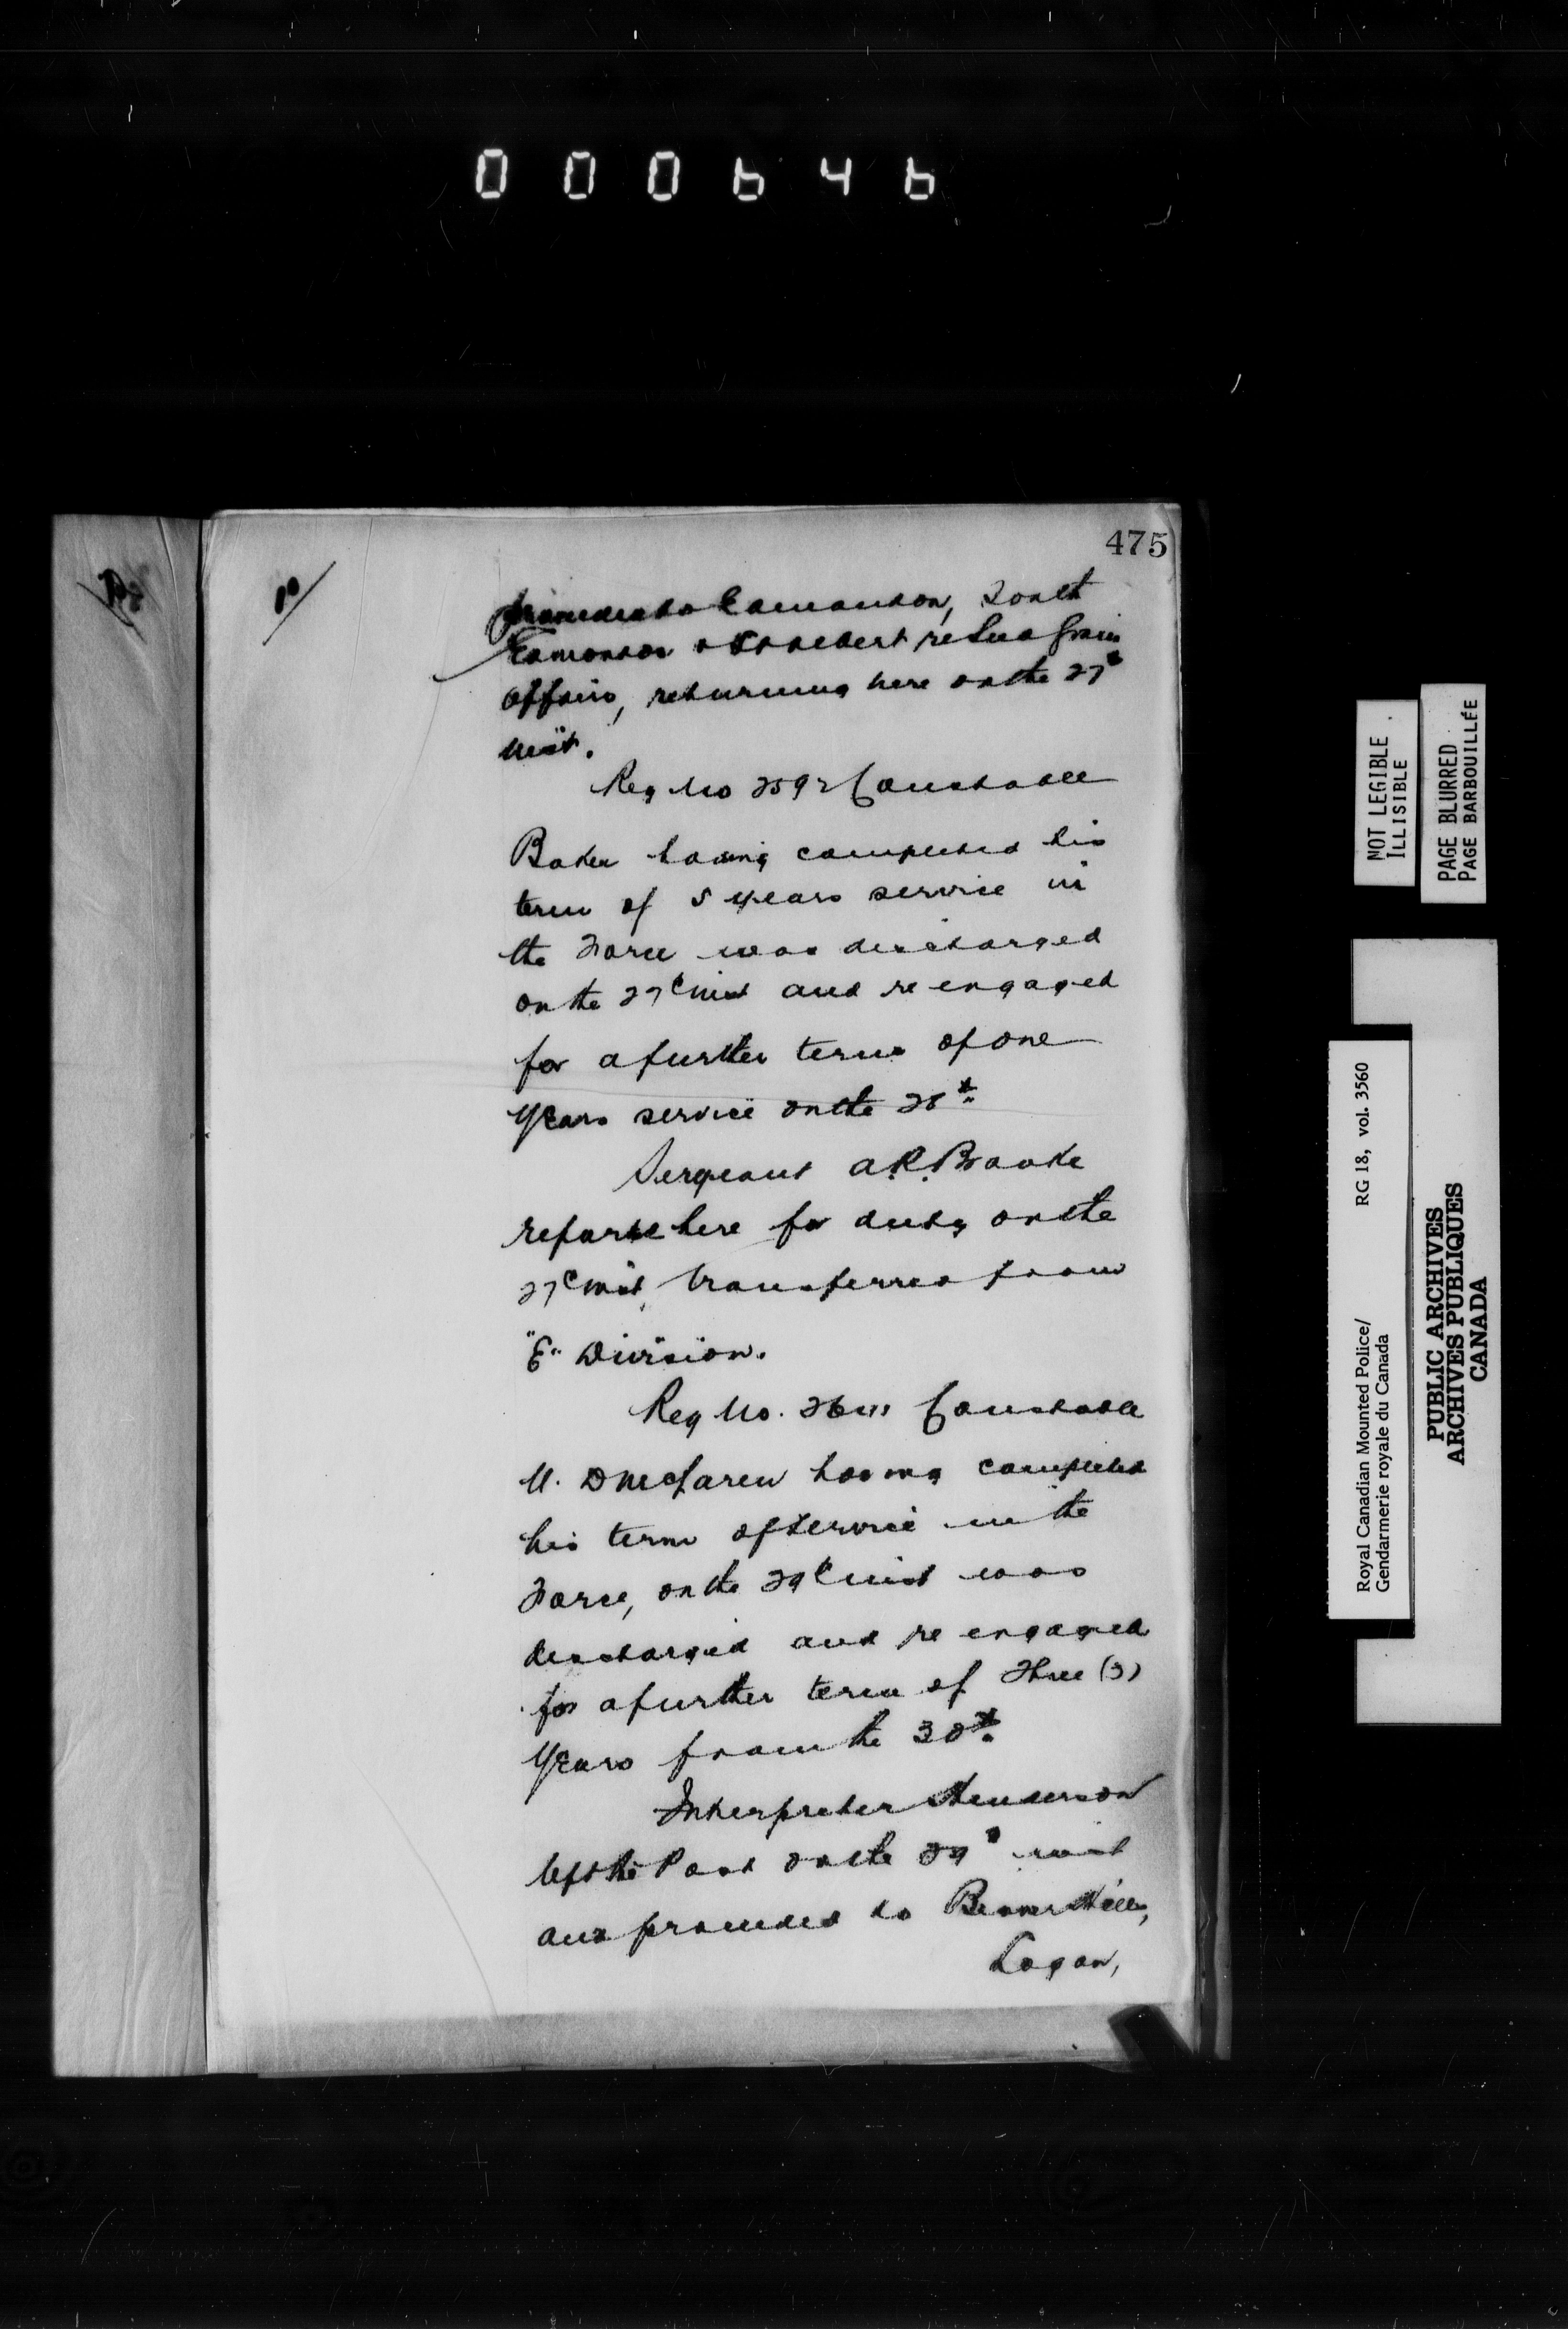 000646
475
10/
proceeded to Edmonton, South
Edmonton & St Albert re Seed Grain
affairs, returning here on the 27th
inst.
Reg No 2592 Constable
Baker having completed his
term of 5 years service in
the Force was discharged
on the 27th inst and re engaged
for a further term of one
years service on the 28th
Sergeant A.R. Brooke
reported here for duty on the
27th inst, transferred from
"E" Division.
Reg No. Constable
McLaren having completed
his term of service in the
Force, on the 29th inst was
discharged and re engaged
for a further term of Three (3)
years from the 30th
Interpreter Henderson
left the Post on the 29th inst
and proceeded to Beaver Hills,
Logan,
NOT LEGIBLE
ILLISIBLE
PAGE BLURRED
PAGE BARBOUILLÉE
Royal Canadian Mounted Police/ RG 18, vol. 3560
Gendarmerie royale du Canada
PUBLIC ARCHIVES
ARCHIVES PUBLIQUES
CANADA